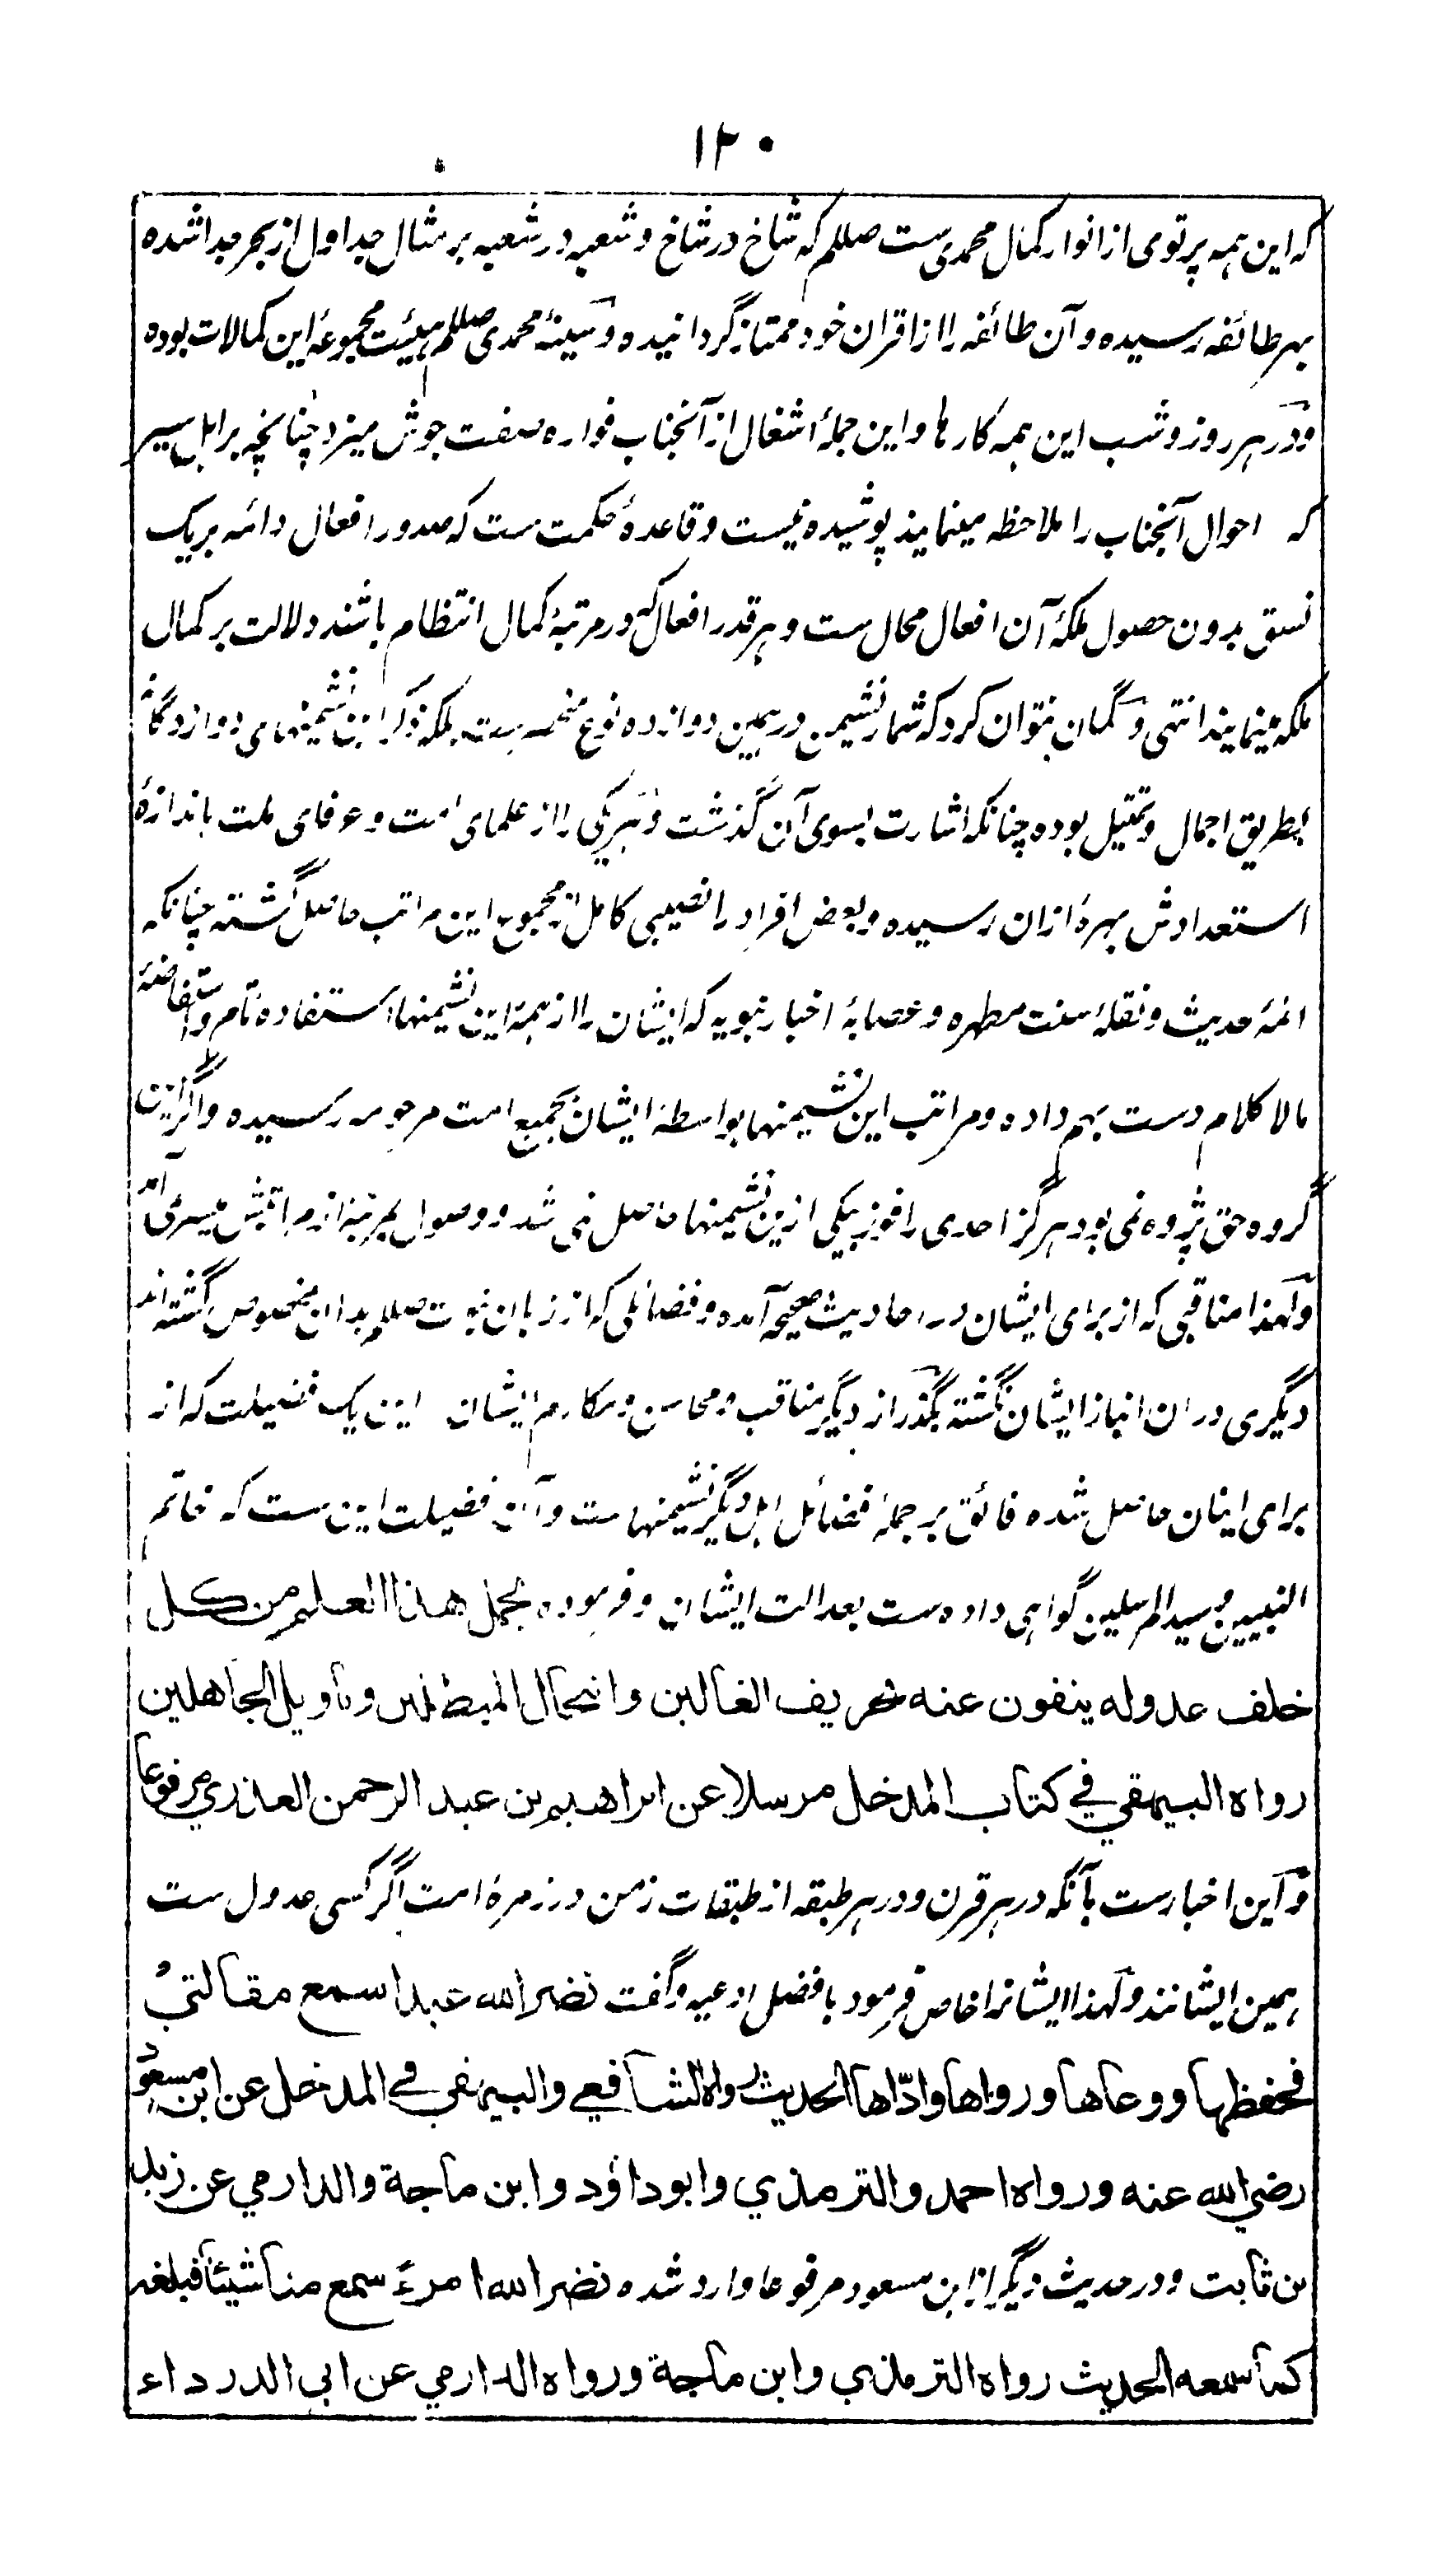 ۱۲۰
که این همه پرتوی از انوار کمال محمدی ست صللم که شاخ در شاخ و شعبه در شعبه بر مثال جداول از بحر جدا شده
بهر طائفه رسیده و آن طائفه را از اقران خود ممتاز گردانیده و سینهٔ محمدی صللم هیئت مجموعهٔ این کمالات بوده
و در هر روز و شب این همه کارها و این جملهٔ اشغال از آنجناب فواره صفت جوش میزد چنانچه بر اهل سیر
که احوال آنجناب را ملاحظه مینمایند پوشیده نیست و قاعدهٔ حکمت ست که صدور افعال دائمه بر یک
نسق بدون حصول ملکهٔ آن افعال محال ست و هر قدر افعال که در مرتبهٔ کمال انتظام باشند دلالت بر کمال
ملکه مینمایند انتهی و گمان نتوان کرد که شمار نشیمن در همین دوازده نوع منحصر ست بلکه ذکر این نشیمنهای دوازده گانه
بطریق اجمال و تمثیل بوده چنانکه اشارت بسوی آن گذشت و هر یکی را از علمای امت و عرفای ملت باندازهٔ
استعدادش بهرهٔ ازان رسیده و بعض افراد را نصیبی کامل از مجموع این مراتب حاصل گشته چنانکه
ائمهٔ حدیث و نقلهٔ سنت مطهره و عصابهٔ اخبار نبویه که ایشان را از همهٔ این نشیمنها استفاده تام و استفاضهٔ
مالا کلام دست بهم داده و مراتب این نشیمنها بواسطهٔ ایشان بجمیع امت مرحومه رسیده و اگر این
گروه حق پژوه نمی بود هرگز احدی را فوز بیکی ازین نشیمنها حاصل نمی شد و وصول بمرتبهٔ از مراتبش میسر نمی آمد
و لهذا مناقبی که از برای ایشان در احادیث صحیحه آمده و فضائلی که از زبان نبوت صللم بدان مخصوص گشته اند
دیگری دران انباز ایشان نگشته بگذر از دیگر مناقب و محاسن و مکارم ایشان این یک فضیلت که از
برای اینان حاصل شده فائق بر جملهٔ فضائل اهل دیگر نشیمنهاست و آن فضیلت این ست که خاتم
النبیین و سید المرسلین گواهی داده ست بعدالت ایشان و فرموده یحمل هذا العلم من کل
خلف عدوله ینفون عنه تحریف الغالین وانتحال المبطلین وتاویل الجاهلین
رواه البیهقی فی کتاب المدخل مرسلا عن ابراهیم بن عبد الرحمن العذری مرفوعا
و این اخبارست بآنکه در هر قرن و در هر طبقه از طبقات زمن در زمرهٔ امت اگر کسی عدول ست
همین ایشانند و لهذا ایشانرا خاص فرمود بافضل ادعیه و گفت نضر الله عبدا سمع مقالتی
فحفظها ووعاها ورواها وادّاها الحدیث رواه الشافعی والبیهقی فی المدخل عن ابن مسعود
رضی الله عنه ورواه احمد والترمذی وابو داؤد وابن ماجة والدارمی عن زید
بن ثابت و در حدیث دیگر از ابن مسعود مرفوعا وارد شده نضر الله امرءً سمع منا شیئا فبلغه
کما سمعه الحدیث رواه الترمذی وابن ماجة ورواه الدارمی عن ابی الدرداء